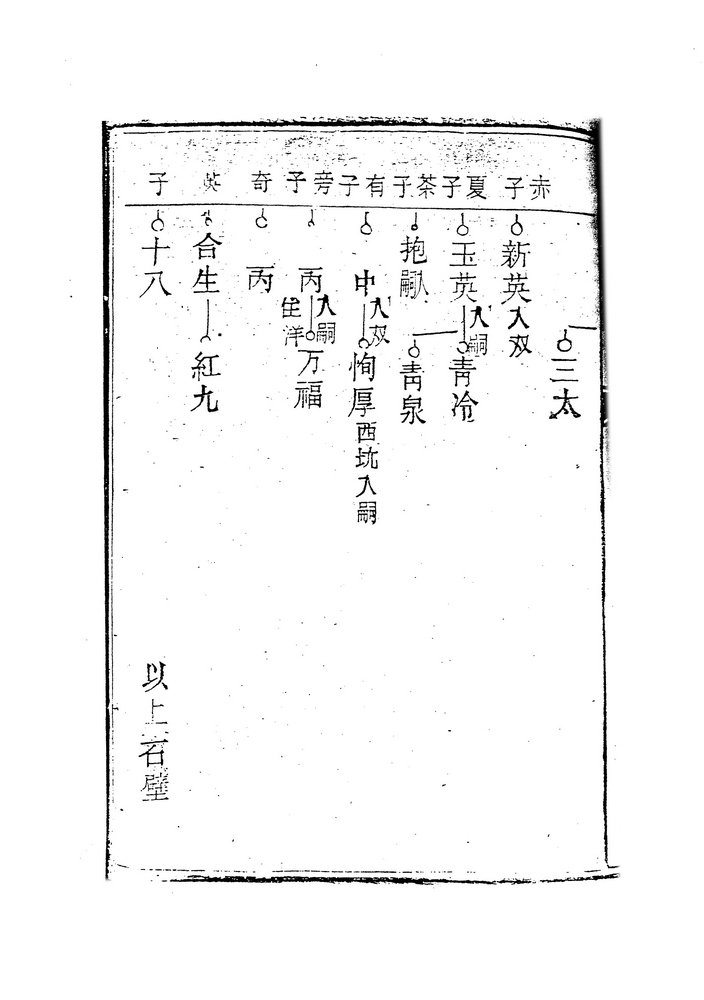 赤子夏子茶子有子旁子奇英子
三太
新英入双
玉英入嗣
青冷
抱嗣
青泉
中入双
恂厚西坑入嗣
丙入嗣住洋
万福
丙
合生
紅九
十八
以上石壁